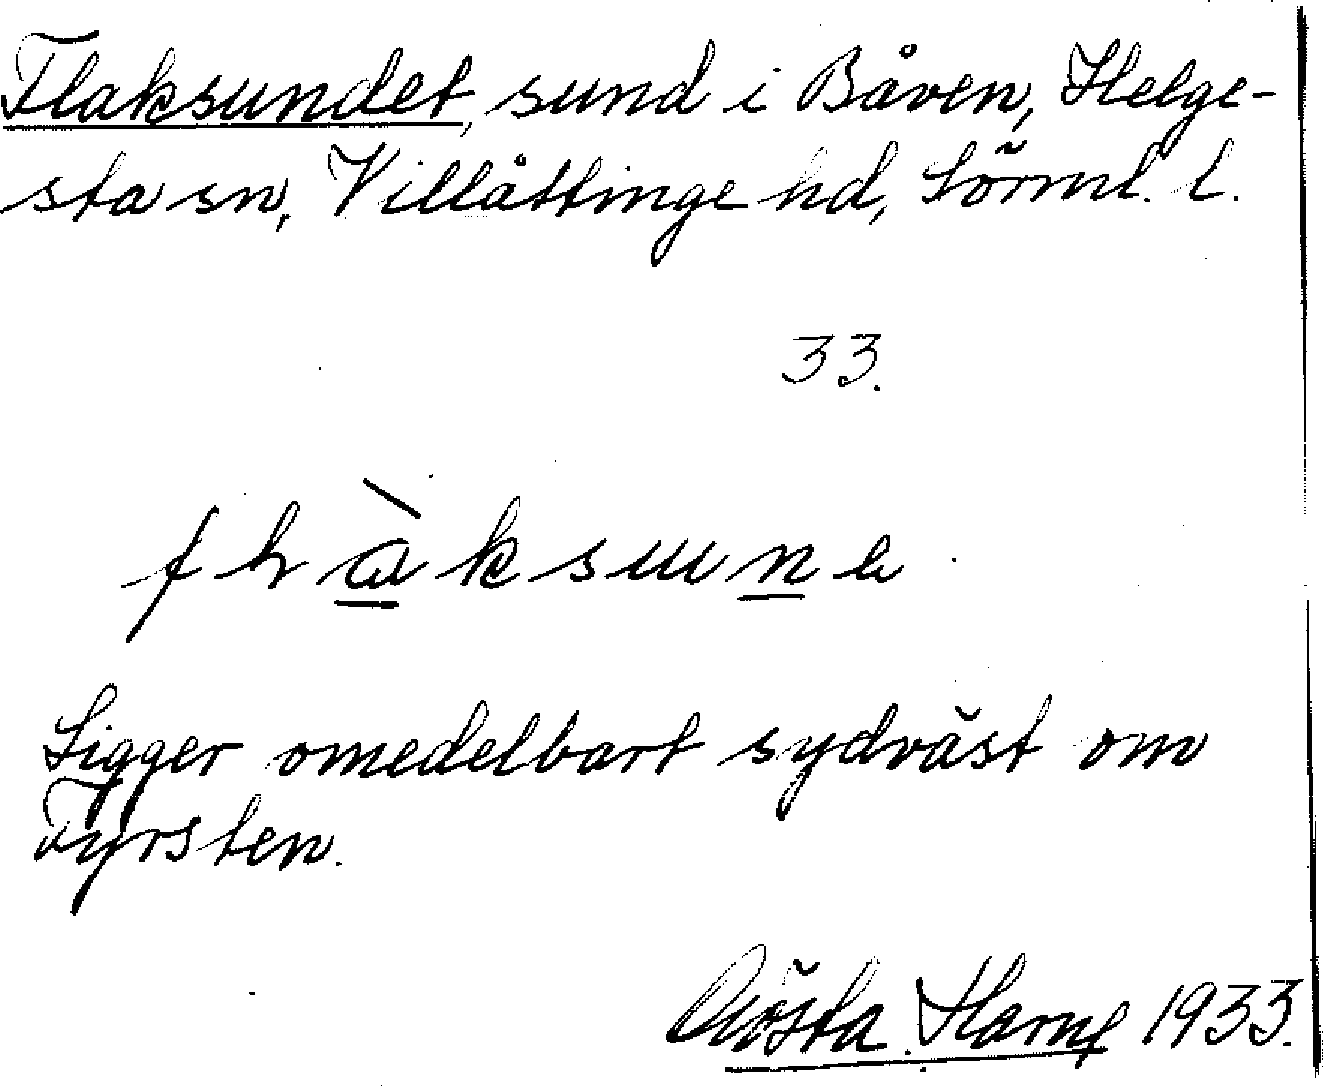 Flaksundet, sund i Båven, Helge-
sta sn, Villåttinge hd, Sörml. l.
33.
Ligger omedelbart sydväst om
Fyrsten.
Gösta Harne 1933.